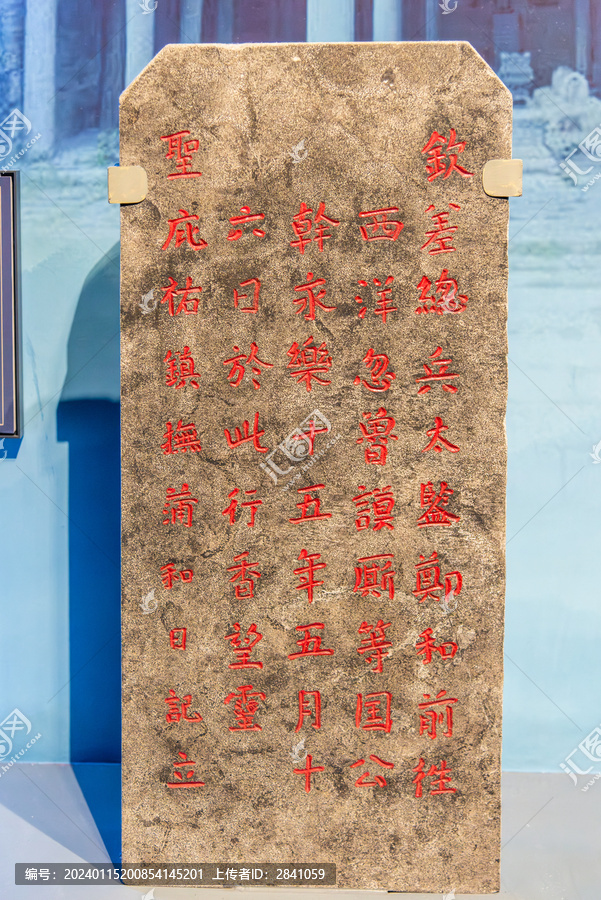 欽差總兵太監鄭和前徃
西洋忽魯謨厮等囯公
幹永樂十五年五月十
六日於此行香望靈
聖庇祐鎮撫蒲和日記立
编号：20240115200854145201 上传者ID：2841059